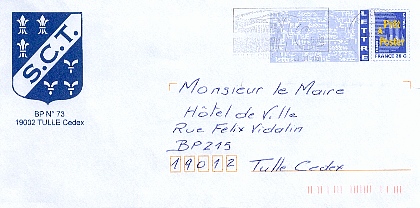 S.C.T.
BP N° 73
19002 TULLE Cedex
LETTRE
Prêt
à
Poster
FRANCE 20 G
Monsieur le Maire
Hôtel de Ville
Rue Félix Vidalin
BP215
19012 Tulle Cedex